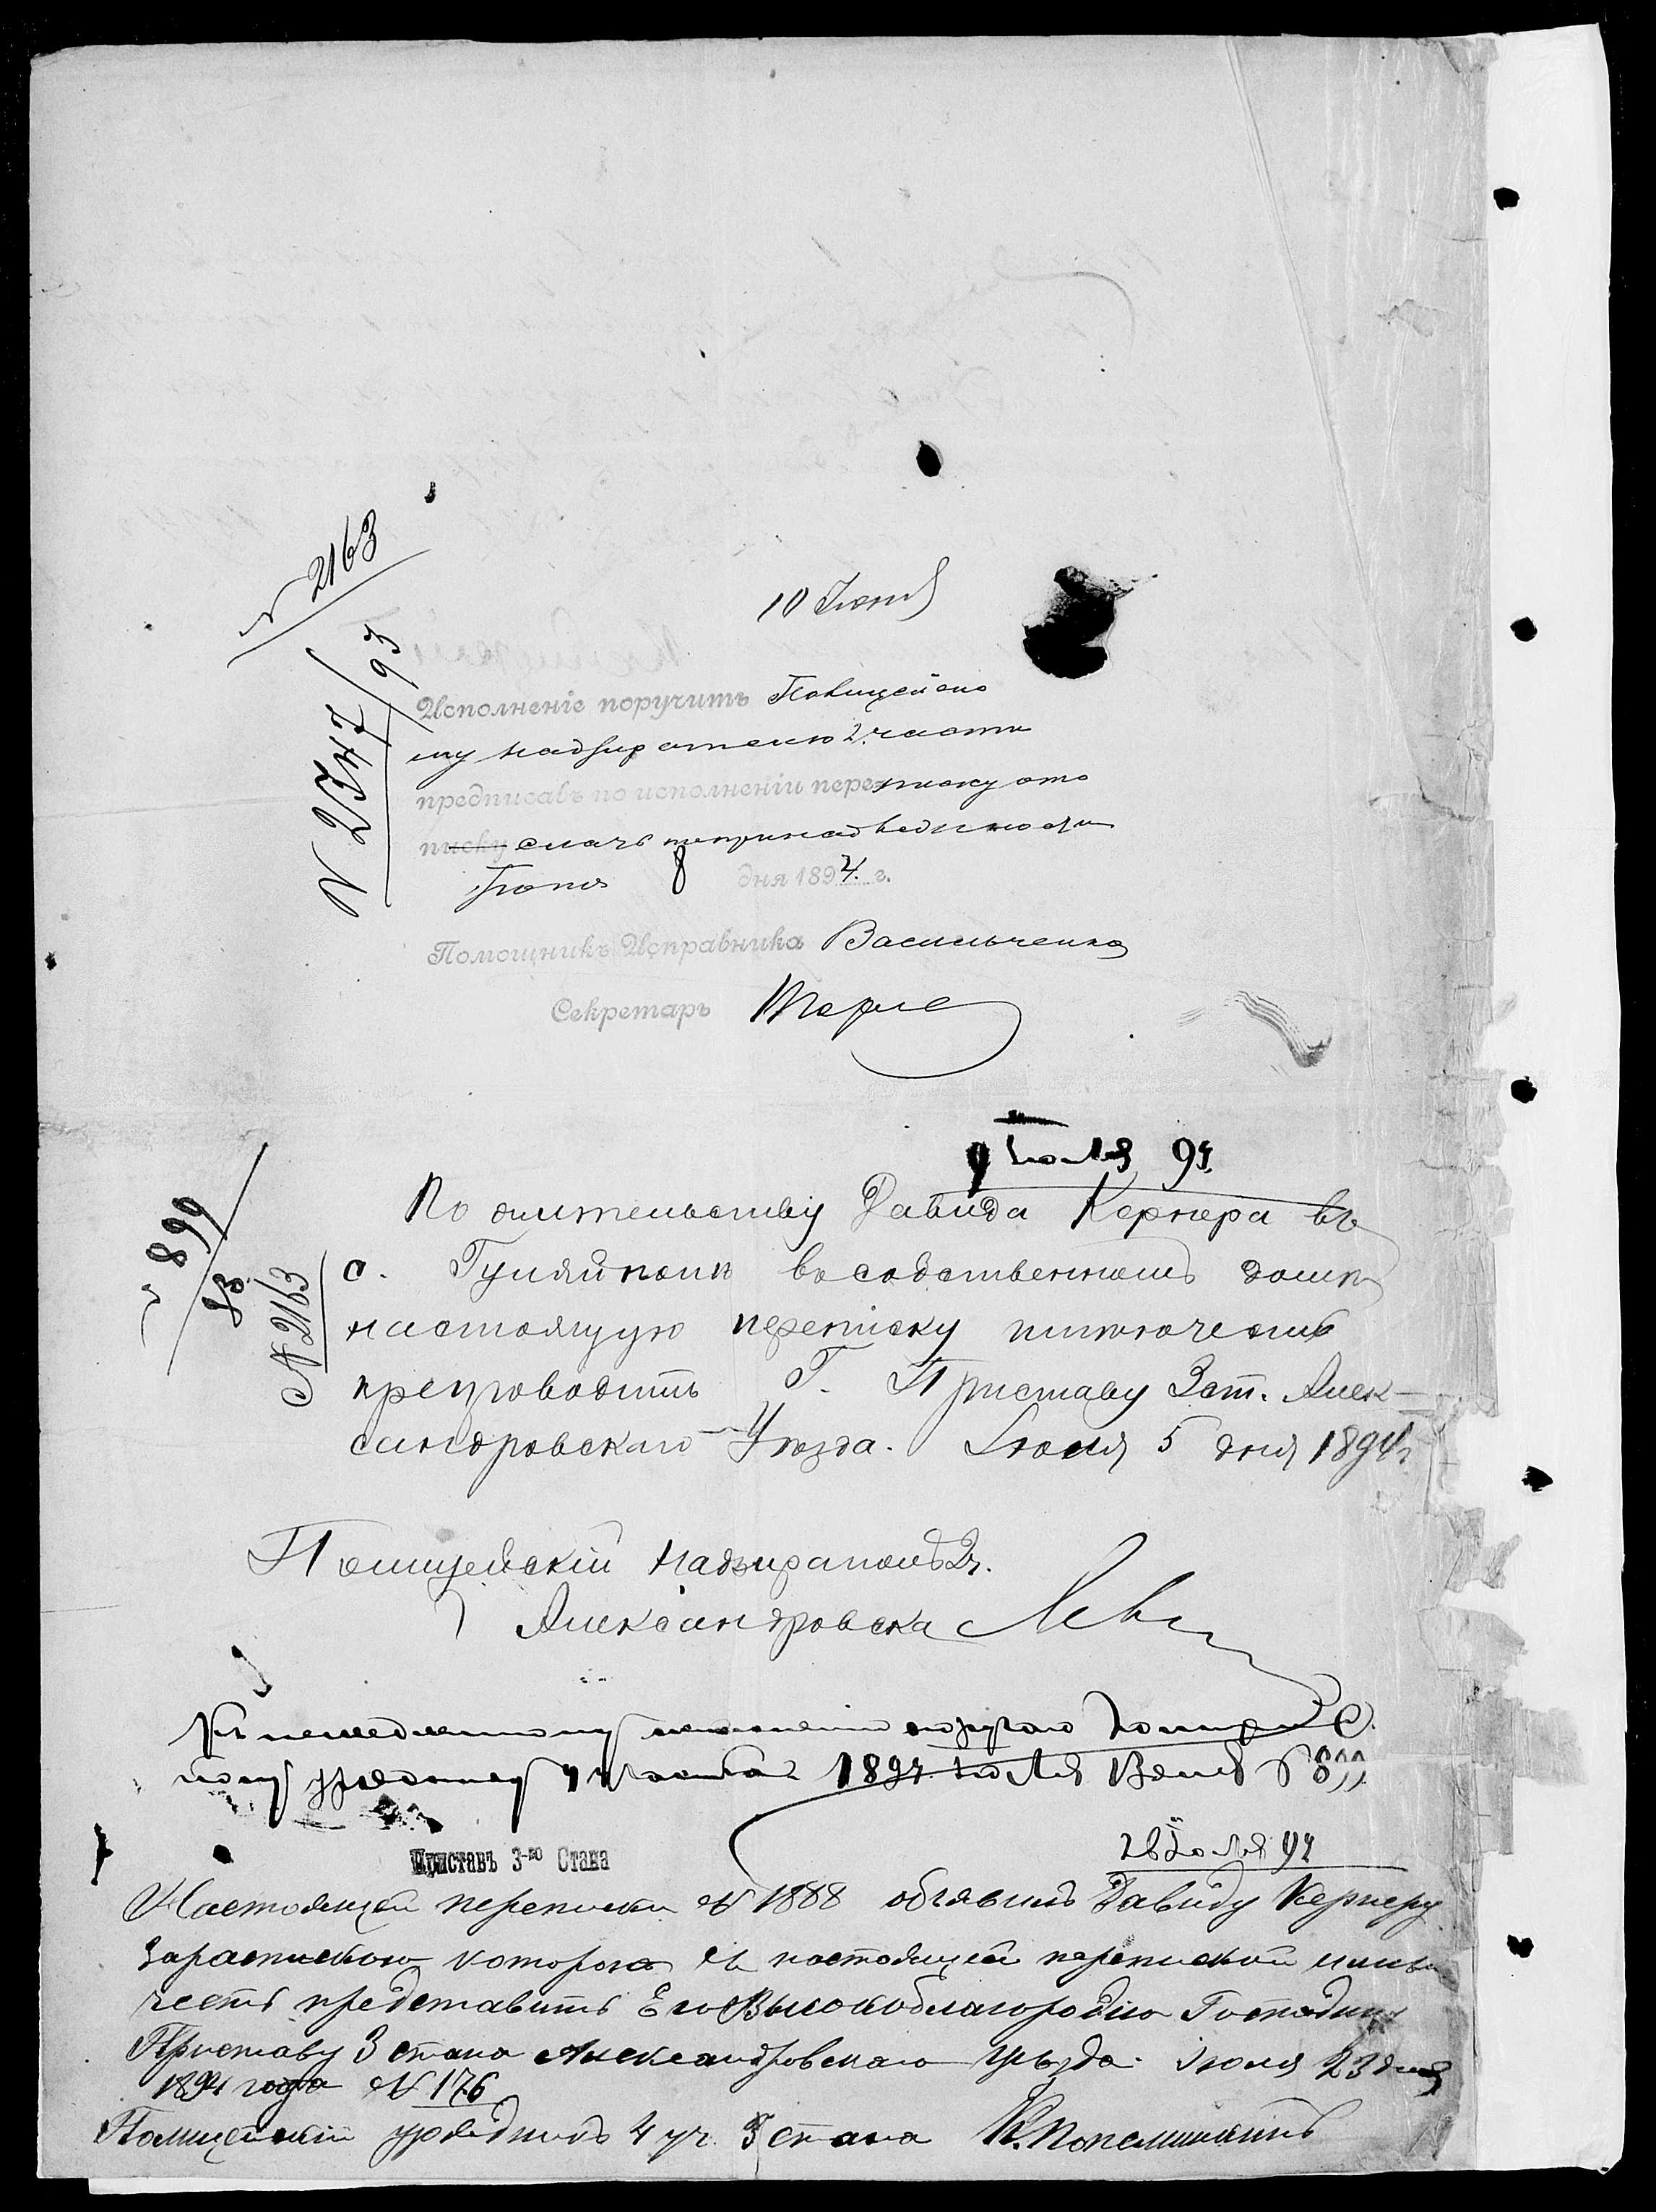 № 2163
10 Іюня
№ 2247/93
Исполненіе поручить Полицейско
му надзирателю 2 части
предписавъ по исполненіи переписку ото
писку слать по принадлежности
Іюня 8 дня 1894 г.
Помощникъ Исправника Васильченко
Секретарь
9 Іюля 94
№ 899
93
№ 2163
По жительству Давида Кернера въ
с. Гуляйполѣ въ собственномъ домѣ
настоящую переписку
препроводить Г. Приставу 3 ст. Алек-
сандровскаго Уѣзда. Іюля 5 дня 1894 г
Полицейскій Надзиратель 2 ч.
Александровска
Къ немедленному исполненію поручаю Полицей
скому уряднику 4 участка 1894 Іюля № 899
23 Іюля 94
Приставъ 3-го Стана
Настоящей переписки № 1888 объявилъ Давиду Кернеру
зарасписկою которою съ настоящей перепиской имѣю
честь представить Его Высокоблагородію Господину
Приставу 3 стана Александровскаго уѣзда. Іюля 23 дня
1894 года № 176
Полицейскій урядникъ 4 уч. 3 стана